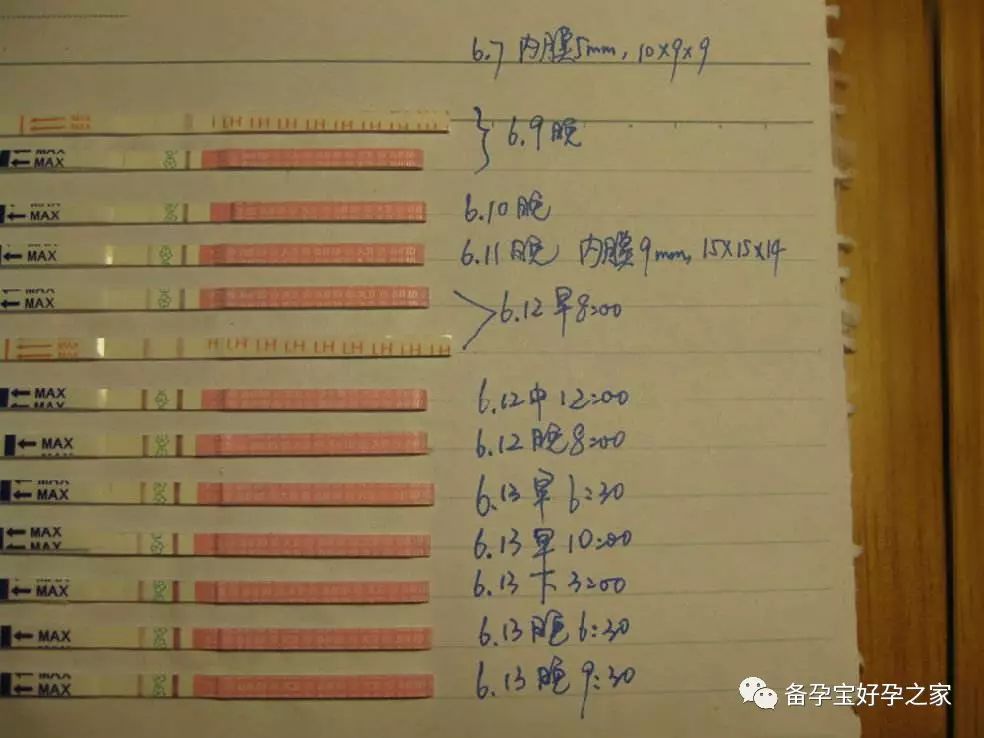 6.7 内膜5mm, 10×9×9
MAX
MAX
LH LH LH LH LH LH LH LH
} 6.9 晚
MAX
MAX
MAX
6.10 晚
MAX
6.11 晚 内膜9mm, 15×15×14
MAX
6.12 早8:00
MAX
MAX
H LH LH LH LH LH LH LH LH
MAX
6.12 中 12:00
MAX
6.12 晚 8:00
MAX
6.13 早 6:30
MAX
6.13 早 10:00
MAX
6.13 下 3:00
MAX
6.13 晚 6:30
MAX
6.13 晚 9:30
备孕宝好孕之家